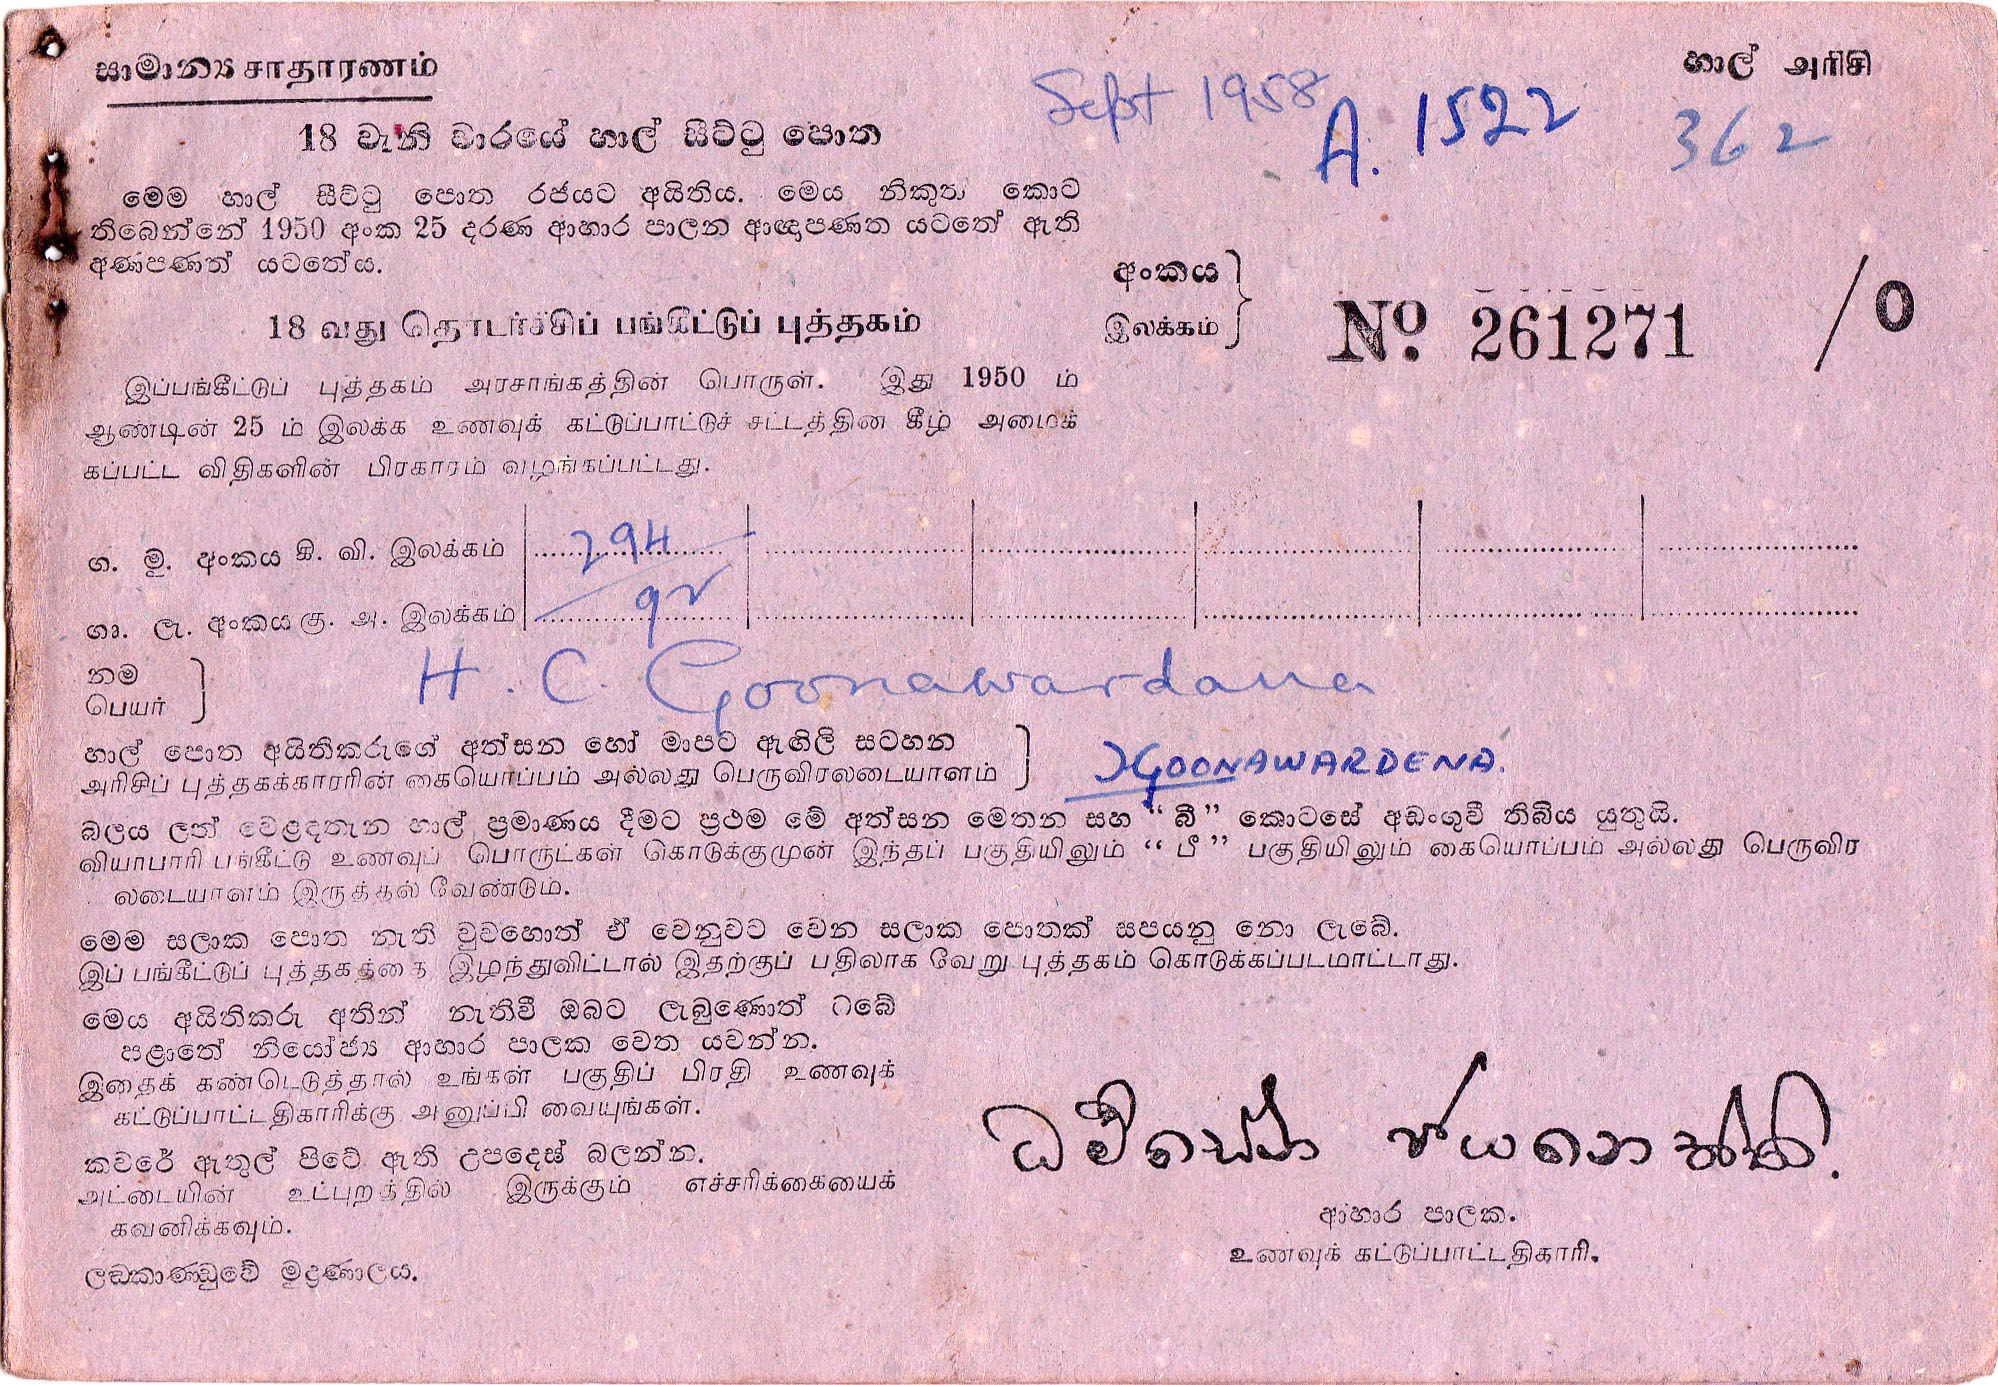 සාමාන්‍ය சாதாரணம்
හාල් அரிசி
Sept 1958
A. 1522
362
18 වැනි වාරයේ හාල් සීට්ටු පොත
මෙම හාල් සීට්ටු පොත රජයට අයිතිය. මෙය නිකුත්‍ය කොට
තිබෙන්නේ 1950 අංක 25 දරණ ආහාර පාලන ආඥාපණත යටතේ ඇති
අණපණත් යටතේය.
අංකය
இலக்கம்
No. 261271 /0
18 வது தொடர்ச்சிப் பங்கீட்டுப் புத்தகம்
இப்பங்கீட்டுப் புத்தகம் அரசாங்கத்தின் பொருள். இது 1950 ம்
ஆண்டின் 25 ம் இலக்க உணவுக் கட்டுப்பாட்டுச் சட்டத்தின கீழ் அமைக்
கப்பட்ட விதிகளின் பிரகாரம் வழங்கப்பட்டது.
ග. මු. අංකය கி. வி. இலக்கம் 294
ගෘ. ලැ. අංකය கு. அ. இலக்கம் 92
නම
பெயர்
H. C. Goonawardana
හාල් පොත අයිතිකරුගේ අත්සන හෝ මාපට ඇඟිලි සටහන
அரிசிப் புத்தகக்காரரின் கையொப்பம் அல்லது பெருவிரலடையாளம்
GOONAWARDENA.
බලය ලත් වෙළඳතැන හාල් ප්‍රමාණය දීමට ප්‍රථම මේ අත්සන මෙතන සහ “බී” කොටසේ අඩංගුවී තිබිය යුතුයි.
வியாபாரி பங்கீட்டு உணவுப் பொருட்கள் கொடுக்குமுன் இந்தப் பகுதியிலும் “பீ” பகுதியிலும் கையொப்பம் அல்லது பெருவிர
லடையாளம் இருத்தல் வேண்டும்.
මෙම සලාක පොත නැති වුවහොත් ඒ වෙනුවට වෙන සලාක පොතක් සපයනු නො ලැබේ.
இப் பங்கீட்டுப் புத்தகத்தை இழந்துவிட்டால் இதற்குப் பதிலாக வேறு புத்தகம் கொடுக்கப்படமாட்டாது.
මෙය අයිතිකරු අතින් නැතිවී ඔබට ලැබුණොත් ඔබේ
පළාතේ නියෝජ්‍ය ආහාර පාලක වෙත යවන්න.
இதைக் கண்டெடுத்தால் உங்கள் பகுதிப் பிரதி உணவுக்
கட்டுப்பாட்டதிகாரிக்கு அனுப்பி வையுங்கள்.
කවරේ ඇතුල් පිටේ ඇති උපදෙස් බලන්න.
அட்டையின் உட்புறத்தில் இருக்கும் எச்சரிக்கையைக்
கவனிக்கவும்.
ආහාර පාලක.
உணவுக் கட்டுப்பாட்டதிகாரி.
ලඞකාණ්ඩුවේ මුද්‍රණාලය.